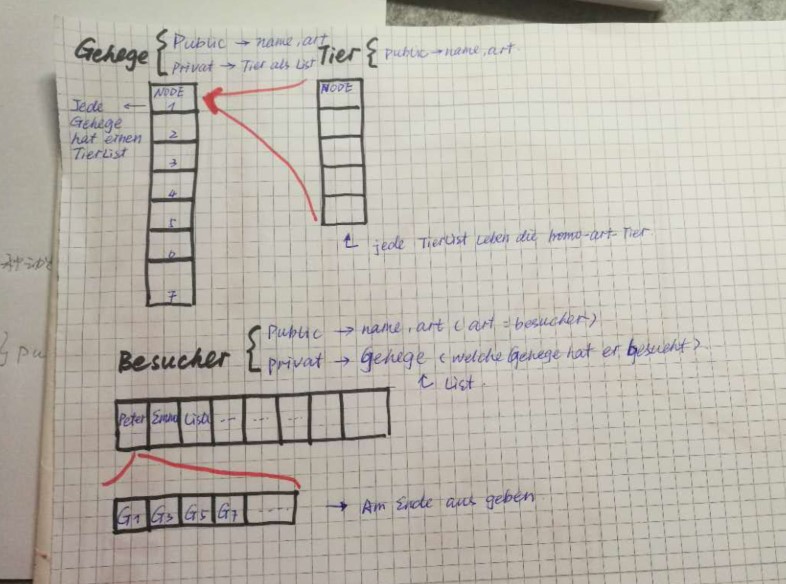 Gehege { Public → name, art
Privat → Tier als List
Tier { public → name, art
NODE
1
2
3
4
5
6
7
Jede ←
Gehege
hat einen
TierList
NODE
↳ jede TierList leben die homo-art Tier
Besucher { Public → name, art (art = besucher)
privat → Gehege (welche Gehege hat er besucht)
↳ List
Peter Emma Lisa ... ... ...
G1 G3 G5 G7 ....
→ Am Ende aus geben